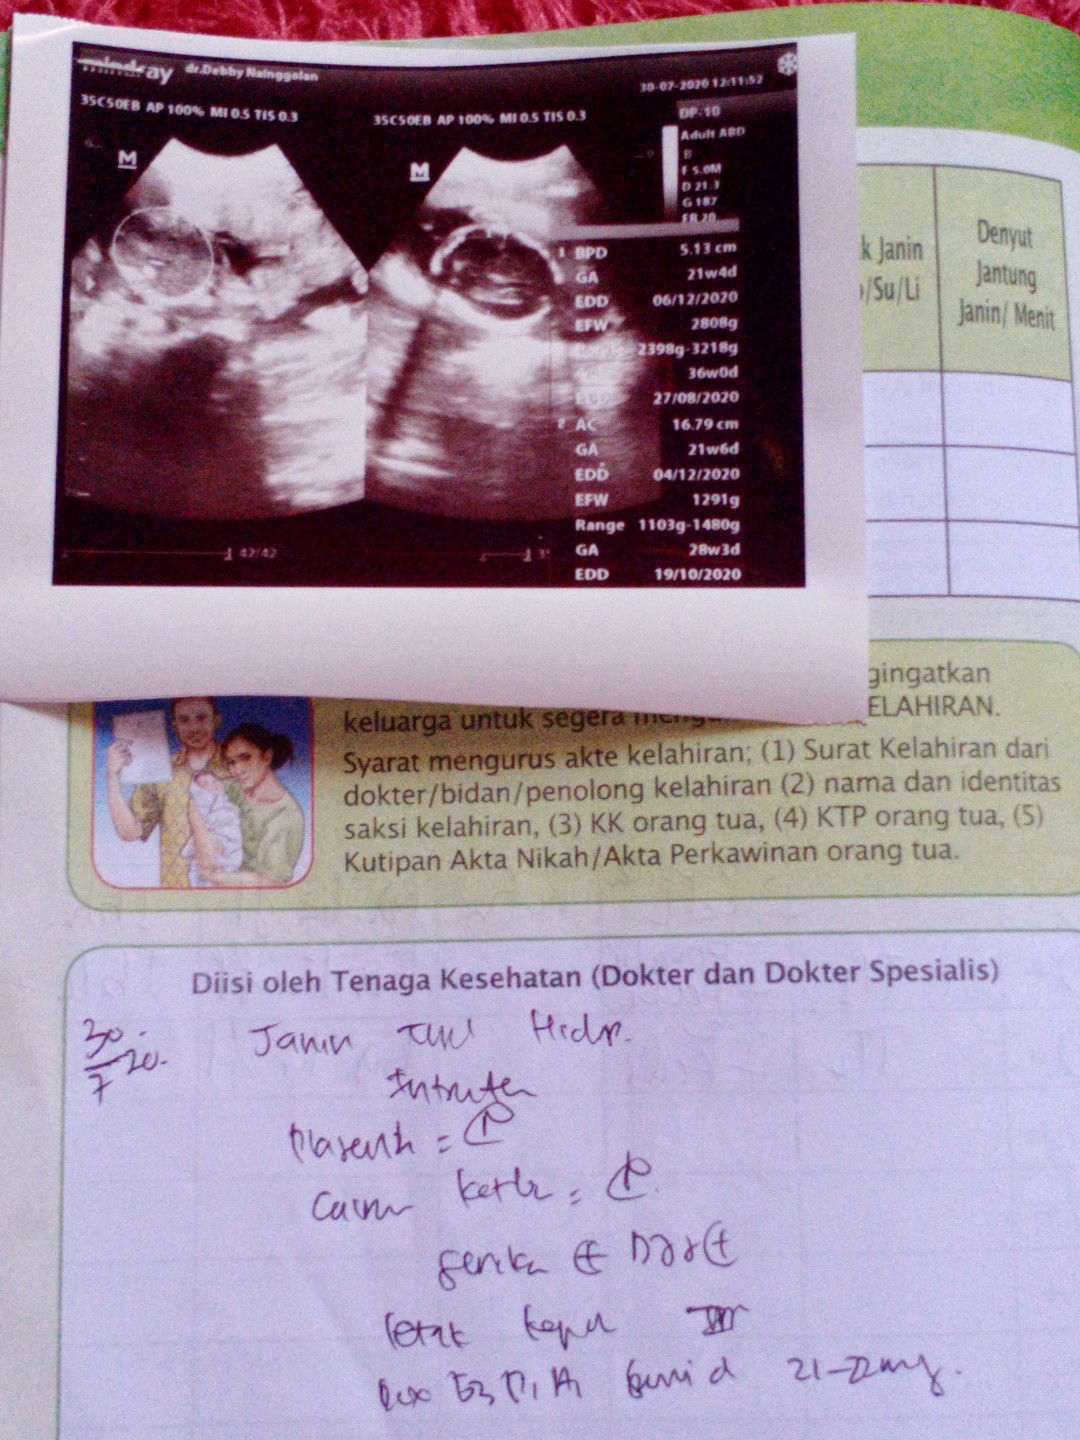 mindray dr.Debby Nainggolan
30-07-2020 12:11:52
35C50EB AP 100% MI 0.5 TIS 0.3
35C50EB AP 100% MI 0.5 TIS 0.3
DP-10
Adult ABD
B
F 5.0M
D 21.3
G 187
FR 20
M
M
1 BPD 5.13 cm
GA 21w4d
EDD 06/12/2020
EFW 2808g
2398g-3218g
36w0d
27/08/2020
2 AC 16.79 cm
GA 21w6d
EDD 04/12/2020
EFW 1291g
Range 1103g-1480g
GA 28w3d
EDD 19/10/2020
42/42
k Janin
/Su/Li
Denyut
Jantung
Janin/ Menit
gingatkan
keluarga untuk segera ELAHIRAN.
Syarat mengurus akte kelahiran; (1) Surat Kelahiran dari
dokter/bidan/penolong kelahiran (2) nama dan identitas
saksi kelahiran, (3) KK orang tua, (4) KTP orang tua, (5)
Kutipan Akta Nikah/Akta Perkawinan orang tua.
Diisi oleh Tenaga Kesehatan (Dokter dan Dokter Spesialis)
30/7 20. Janin Hidup
=
=
letak
21-22 mg.